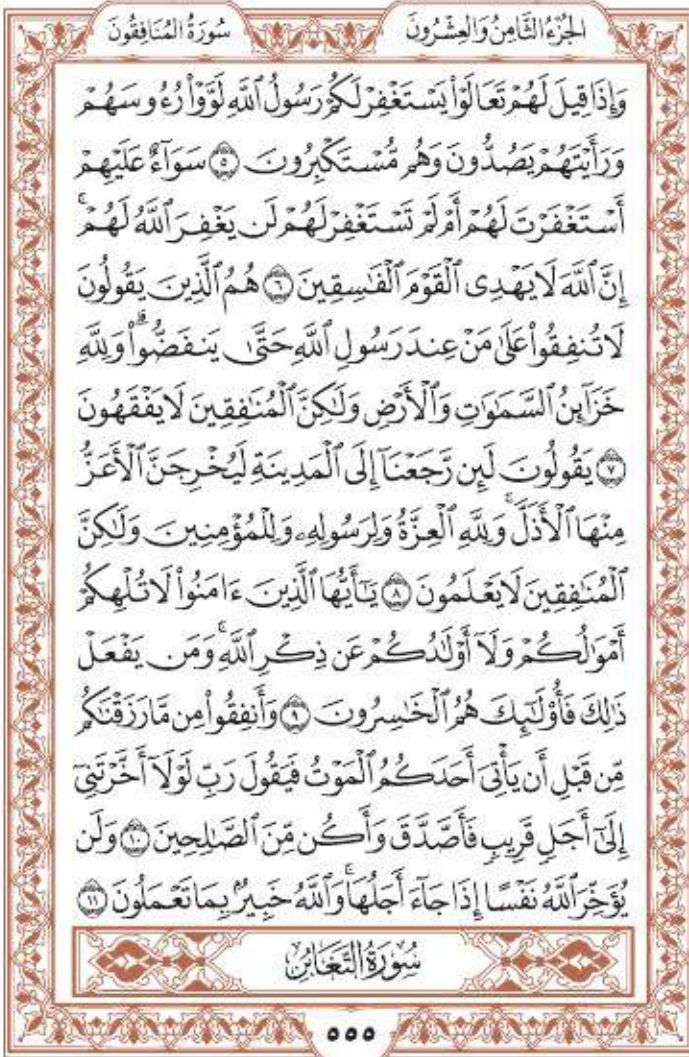 الجُزْءُ الثَّامِنُ وَالعِشْرُونَ سُورَةُ المُنَافِقُونَ
وَإِذَا قِيلَ لَهُمْ تَعَالَوْا۟ يَسْتَغْفِرْ لَكُمْ رَسُولُ ٱللَّهِ لَوَّوْا۟ رُءُوسَهُمْ
وَرَأَيْتَهُمْ يَصُدُّونَ وَهُم مُّسْتَكْبِرُونَ ٥ سَوَآءٌ عَلَيْهِمْ
أَسْتَغْفَرْتَ لَهُمْ أَمْ لَمْ تَسْتَغْفِرْ لَهُمْ لَن يَغْفِرَ ٱللَّهُ لَهُمْ ۚ
إِنَّ ٱللَّهَ لَا يَهْدِى ٱلْقَوْمَ ٱلْفَٰسِقِينَ ٦ هُمُ ٱلَّذِينَ يَقُولُونَ
لَا تُنفِقُوا۟ عَلَىٰ مَنْ عِندَ رَسُولِ ٱللَّهِ حَتَّىٰ يَنفَضُّوا۟ ۗ وَلِلَّهِ
خَزَآئِنُ ٱلسَّمَٰوَٰتِ وَٱلْأَرْضِ وَلَٰكِنَّ ٱلْمُنَٰفِقِينَ لَا يَفْقَهُونَ
٧ يَقُولُونَ لَئِن رَّجَعْنَآ إِلَى ٱلْمَدِينَةِ لَيُخْرِجَنَّ ٱلْأَعَزُّ
مِنْهَا ٱلْأَذَلَّ ۚ وَلِلَّهِ ٱلْعِزَّةُ وَلِرَسُولِهِۦ وَلِلْمُؤْمِنِينَ وَلَٰكِنَّ
ٱلْمُنَٰفِقِينَ لَا يَعْلَمُونَ ٨ يَٰٓأَيُّهَا ٱلَّذِينَ ءَامَنُوا۟ لَا تُلْهِكُمْ
أَمْوَٰلُكُمْ وَلَآ أَوْلَٰدُكُمْ عَن ذِكْرِ ٱللَّهِ ۚ وَمَن يَفْعَلْ
ذَٰلِكَ فَأُو۟لَٰٓئِكَ هُمُ ٱلْخَٰسِرُونَ ٩ وَأَنفِقُوا۟ مِن مَّا رَزَقْنَٰكُم
مِّن قَبْلِ أَن يَأْتِىَ أَحَدَكُمُ ٱلْمَوْتُ فَيَقُولَ رَبِّ لَوْلَآ أَخَّرْتَنِىٓ
إِلَىٰٓ أَجَلٍ قَرِيبٍ فَأَصَّدَّقَ وَأَكُن مِّنَ ٱلصَّٰلِحِينَ ١٠ وَلَن
يُؤَخِّرَ ٱللَّهُ نَفْسًا إِذَا جَآءَ أَجَلُهَا ۚ وَٱللَّهُ خَبِيرٌۢ بِمَا تَعْمَلُونَ ١١
سُورَةُ التَّغَابُنِ
٥٥٥